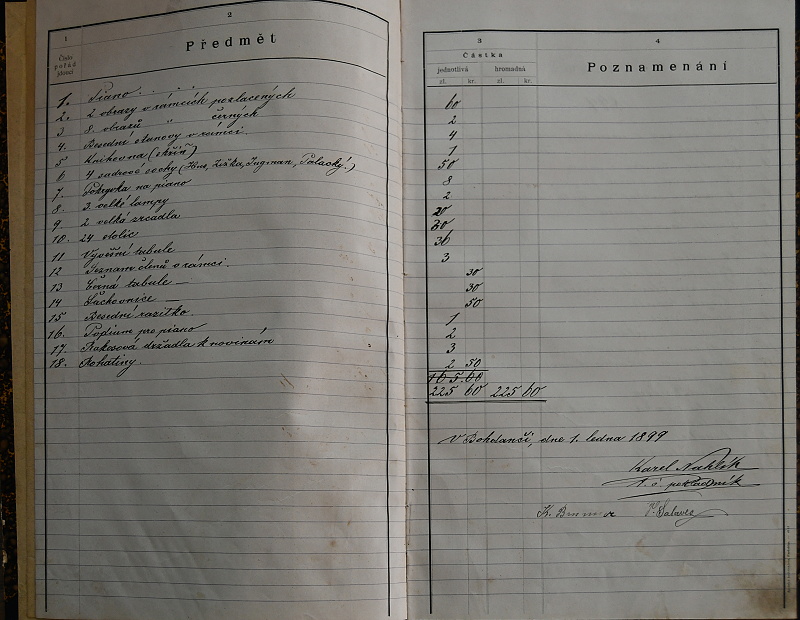 1
Číslo
pořád
jdoucí
2
Předmět
1. Piano
2. 2 obrazy v rámcích pozlacených
3 8 obrazů " černých
4. Besední stanovy v rámci.
5 Knihovna (skříň)
6 4 sádrové sochy (Hus, Žižka, Jungman, Palacký!)
7. Pokryvka na piano
8. 3 velké lampy
9. 2 velká zrcadla
10. 24 stolic
11 Vývěsní tabule
12 Seznam členů v rámci.
13 Černá tabule —
14 Šachovnice —
15 Besední razítko
16. Podium pro piano
17. Rakosová držadla k novinám
18. Rohatiny.
3
Částka
jednotlivá hromadná
zl. kr. zl. kr.
4
Poznamenání
60
2
4
1
50
8
2
20
30
36
3
30
30
50
1
2
3
2 50
225 60 225 60
V Bohdanči, dne 1. ledna 1899
Karel Nahlík
t. č. pokladník